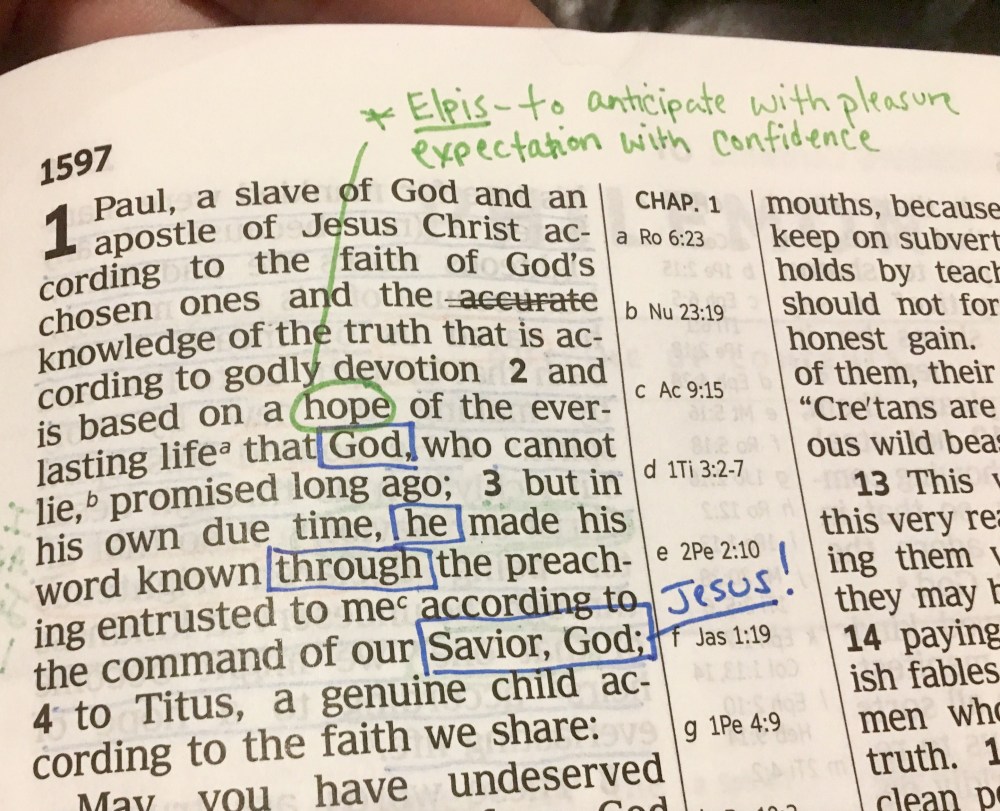 * Elpis - to anticipate with pleasure
expectation with confidence
1597
1 Paul, a slave of God and an
apostle of Jesus Christ ac-
cording to the faith of God's
chosen ones and the accurate
knowledge of the truth that is ac-
cording to godly devotion 2 and
is based on a hope of the ever-
lasting lifeᵃ that God, who cannot
lie,ᵇ promised long ago; 3 but in
his own due time, he made his
word known through the preach-
ing entrusted to meᶜ according to
the command of our Savior, God;
4 to Titus, a genuine child ac-
cording to the faith we share:
May you have undeserved
God
CHAP. 1
a Ro 6:23
b Nu 23:19
c Ac 9:15
d 1Ti 3:2-7
e 2Pe 2:10
Jesus!
f Jas 1:19
g 1Pe 4:9
mouths, because
keep on subvert
holds by teach
should not for
honest gain.
of them, their
“Cre′tans are
ous wild bea
13 This
this very re
ing them
they may b
14 paying
ish fables
men who
truth. 1
clean